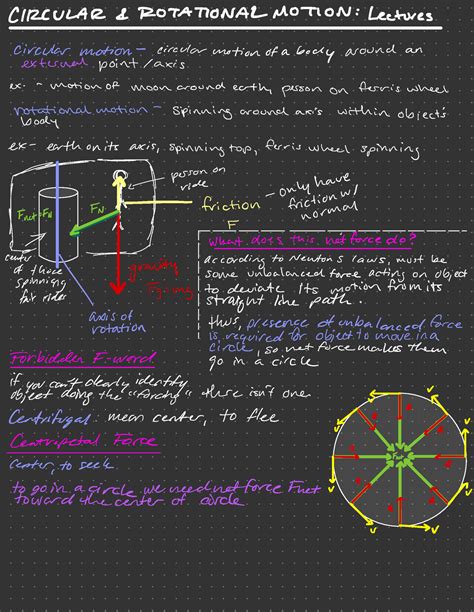 CIRCULAR & ROTATIONAL MOTION: Lectures
circular motion - circular motion of a body around an
external point/axis
ex. - motion of moon around earth, person on ferris wheel
rotational motion - spinning around axis within object's
body
ex- earth on its axis, spinning top, ferris wheel spinning
person on
ride
Fnet=FN
FN
friction
F
only have
friction w/
normal
center
of those
spinning
fair rides
gravity
Fg=mg
axis of
rotation
What does this net force do?
according to Newton's laws, must be
some unbalanced force acting on object
to deviate its motion from its
straight line path.
thus, presence of unbalanced force
is required for object to move in a
circle, so net force makes them
go in a circle
Forbidden F-word
if you can't clearly identify
object doing the "forcing" there isn't one
Centrifugal: mean center, to flee
Centripetal Force
center, to seek
to go in a circle we need net force Fnet
toward the center of circle
v
v
v
v
v
v
v
v
Fnet